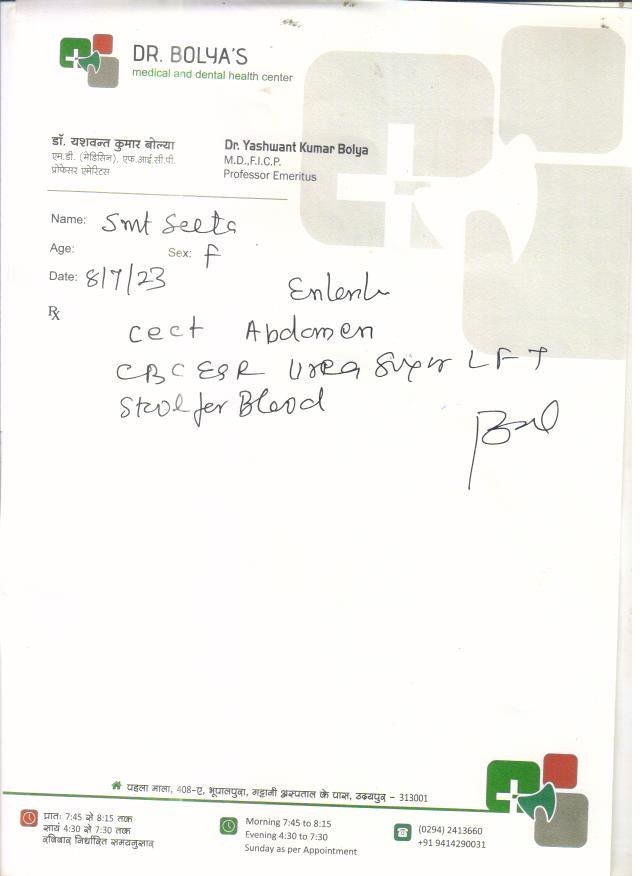 DR. BOLYA'S
medical and dental health center
डॉ. यशवन्त कुमार बोल्या
एम.डी. (मेडिसिन), एफ.आई.सी.पी.
प्रोफेसर एमेरिटस
Dr. Yashwant Kumar Bolya
M.D.,F.I.C.P.
Professor Emeritus
Name: Smt Seeta
Age:
Sex: F
Date: 8/7/23
℞
CECT Abdomen
CBC ESR Urea Sugar LFT
Stool for Blood
पहला माला, 408-ए, भूपालपुरा, गट्टानी अस्पताल के पास, उदयपुर - 313001
प्रातः 7:45 से 8:15 तक
सायं 4:30 से 7:30 तक
रविवार निर्धारित समयनुसार
Morning 7:45 to 8:15
Evening 4:30 to 7:30
Sunday as per Appointment
(0294) 2413660
+91 9414290031